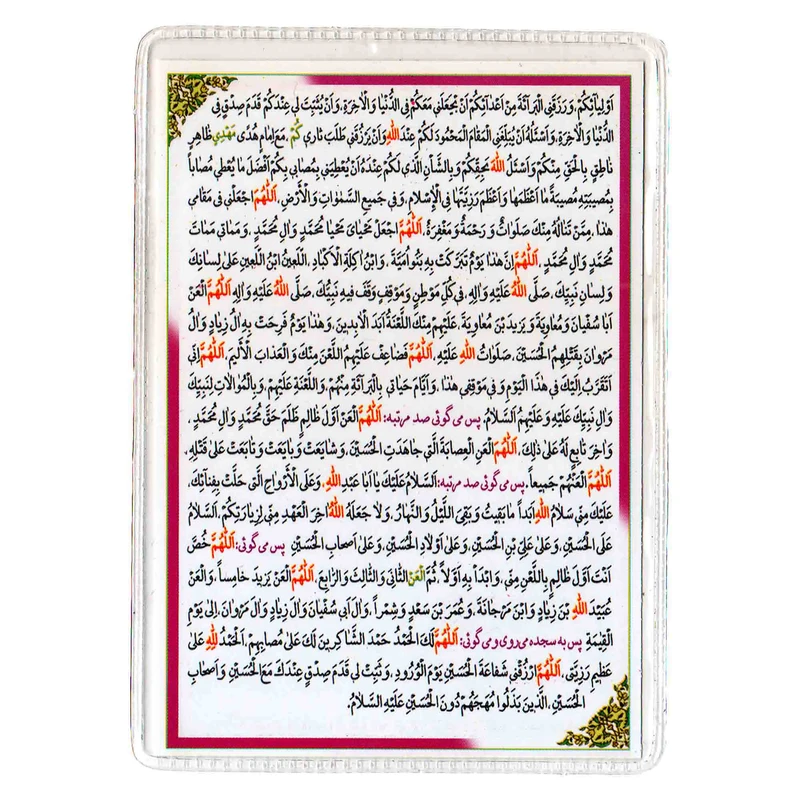 اَوْلِیآئِکُمْ، وَرَزَقَنِی الْبَرآئَةَ مِنْ اَعْدآئِکُمْ اَنْ یَجْعَلَنِی مَعَکُمْ فِی الدُّنْیا وَالْاخِرَةِ، وَاَنْ یُثَبِّتَ لِی عِنْدَکُمْ قَدَمَ صِدْقٍ فِی
الدُّنْیا وَالْاخِرَةِ، وَاَسْئَلُهُ اَنْ یُبَلِّغَنِی الْمَقامَ الْمَحْمُودَ لَکُمْ عِنْدَ اللهِ وَاَنْ یَرْزُقَنِی طَلَبَ ثارِی کُمْ، مَعَ اِمامٍ هُدًی مَهْدِیٍ ظاهِرٍ
ناطِقٍ بِالْحَقِّ مِنْکُمْ وَاَسْئَلُ اللهَ بِحَقِّکُمْ وَبِالشَّاْنِ الَّذی لَکُمْ عِنْدَهُ اَنْ یُعْطِیَنِی بِمُصابِی بِکُمْ اَفْضَلَ ما یُعْطِی مُصاباً
بِمُصِیبَتِهِ مُصِیبَةً ما اَعْظَمَها وَاَعْظَمَ رَزِیَّتَها فِی الْاِسْلامِ، وَفِی جَمِیعِ السَّمٰواتِ وَالْاَرْضِ، اَللّٰهُمَّ اجْعَلْنِی فِی مَقامِی
هذا، مِمَّنْ تَنالُهُ مِنْکَ صَلَواتٌ وَرَحْمَةٌ وَمَغْفِرَةٌ، اَللّٰهُمَّ اجْعَلْ مَحْیایَ مَحْیا مُحَمَّدٍ وَالِ مُحَمَّدٍ، وَمَماتِی مَماتَ
مُحَمَّدٍ وَالِ مُحَمَّدٍ، اَللّٰهُمَّ اِنَّ هذا یَوْمٌ تَبَرَّکَتْ بِهِ بَنُو اُمَیَّةَ، وَابْنُ اکِلَةِ الْاَکْبادِ، اللَّعِینُ ابْنُ اللَّعِینِ عَلیٰ لِسانِکَ
وَلِسانِ نَبِیِّکَ، صَلَّی اللهُ عَلَیْهِ وَالِهِ، فِی کُلِّ مَوْطِنٍ وَمَوْقِفٍ وَقَفَ فِیهِ نَبِیُّکَ، صَلَّی اللهُ عَلَیْهِ وَالِهِ اَللّٰهُمَّ الْعَنْ
اَبا سُفْیانَ وَمُعاوِیَةَ وَیَزِیدَ بْنَ مُعاوِیَةَ، عَلَیْهِمْ مِنْکَ اللَّعْنَةُ اَبَدَ الْابِدِینَ، وَهٰذا یَوْمٌ فَرِحَتْ بِهِ الُ زِیادٍ وَالُ
مَرْوانَ بِقَتْلِهِمُ الْحُسَیْنَ، صَلَواتُ اللهِ عَلَیْهِ، اَللّٰهُمَّ فَضاعِفْ عَلَیْهِمُ اللَّعْنَ مِنْکَ وَالْعَذابَ الْاَلِیمَ، اَللّٰهُمَّ اِنِّی
اَتَقَرَّبُ اِلَیْکَ فِی هٰذَا الْیَوْمِ وَفِی مَوْقِفِی هٰذا، وَاَیّامِ حَیاتِی بِالْبَرآئَةِ مِنْهُمْ، وَاللَّعْنَةِ عَلَیْهِمْ، وَبِالْمُوالاتِ لِنَبِیِّکَ
وَالِ نَبِیِّکَ عَلَیْهِ وَعَلَیْهِمُ السَّلامُ. پس می گوئی صد مرتبه: اَللّٰهُمَّ الْعَنْ اَوَّلَ ظالِمٍ ظَلَمَ حَقَّ مُحَمَّدٍ وَالِ مُحَمَّدٍ،
وَاخِرَ تابِعٍ لَهُ عَلیٰ ذٰلِکَ، اَللّٰهُمَّ الْعَنِ الْعِصابَةَ الَّتِی جاهَدَتِ الْحُسَیْنَ، وَشایَعَتْ وَبایَعَتْ وَتابَعَتْ عَلیٰ قَتْلِهِ،
اَللّٰهُمَّ الْعَنْهُمْ جَمِیعاً. پس می گوئی صد مرتبه: اَلسَّلامُ عَلَیْکَ یا اَبا عَبْدِ اللهِ، وَعَلَی الْاَرْواحِ الَّتِی حَلَّتْ بِفِنآئِکَ،
عَلَیْکَ مِنِّی سَلامُ اللهِ اَبَداً ما بَقِیتُ وَبَقِیَ اللَّیْلُ وَالنَّهارُ، وَلا جَعَلَهُ اللهُ اخِرَ الْعَهْدِ مِنِّی لِزِیارَتِکُمْ، اَلسَّلامُ
عَلَی الْحُسَیْنِ، وَعَلیٰ عَلِیِّ بْنِ الْحُسَیْنِ، وَعَلیٰ اَوْلادِ الْحُسَیْنِ، وَعَلیٰ اَصْحابِ الْحُسَیْنِ پس می گوئی: اَللّٰهُمَّ خُصَّ
اَنْتَ اَوَّلَ ظالِمٍ بِاللَّعْنِ مِنِّی، وَابْدَاْ بِهِ اَوَّلاً، ثُمَّ الْعَنْ الثّانِیَ وَالثّالِثَ وَالرّابِعَ، اَللّٰهُمَّ الْعَنْ یَزِیدَ خامِساً، وَالْعَنْ
عُبَیْدَ اللهِ بْنَ زِیادٍ وَابْنَ مَرْجانَةَ، وَعُمَرَ بْنَ سَعْدٍ وَشِمْراً، وَالَ اَبِی سُفْیانَ وَالَ زِیادٍ وَالَ مَرْوانَ، اِلیٰ یَوْمِ
الْقِیٰمَةِ پس به سجده می روی و می گوئی: اَللّٰهُمَّ لَکَ الْحَمْدُ حَمْدَ الشّاکِرِینَ لَکَ عَلیٰ مُصابِهِمْ، اَلْحَمْدُ لِلّٰهِ عَلیٰ
عَظِیمِ رَزِیَّتِی، اَللّٰهُمَّ ارْزُقْنِی شَفاعَةَ الْحُسَیْنِ یَوْمَ الْوُرُودِ، وَثَبِّتْ لِی قَدَمَ صِدْقٍ عِنْدَکَ مَعَ الْحُسَیْنِ وَاَصْحابِ
الْحُسَیْنِ، الَّذِینَ بَذَلُوا مُهَجَهُمْ دُونَ الْحُسَیْنِ عَلَیْهِ السَّلامُ.